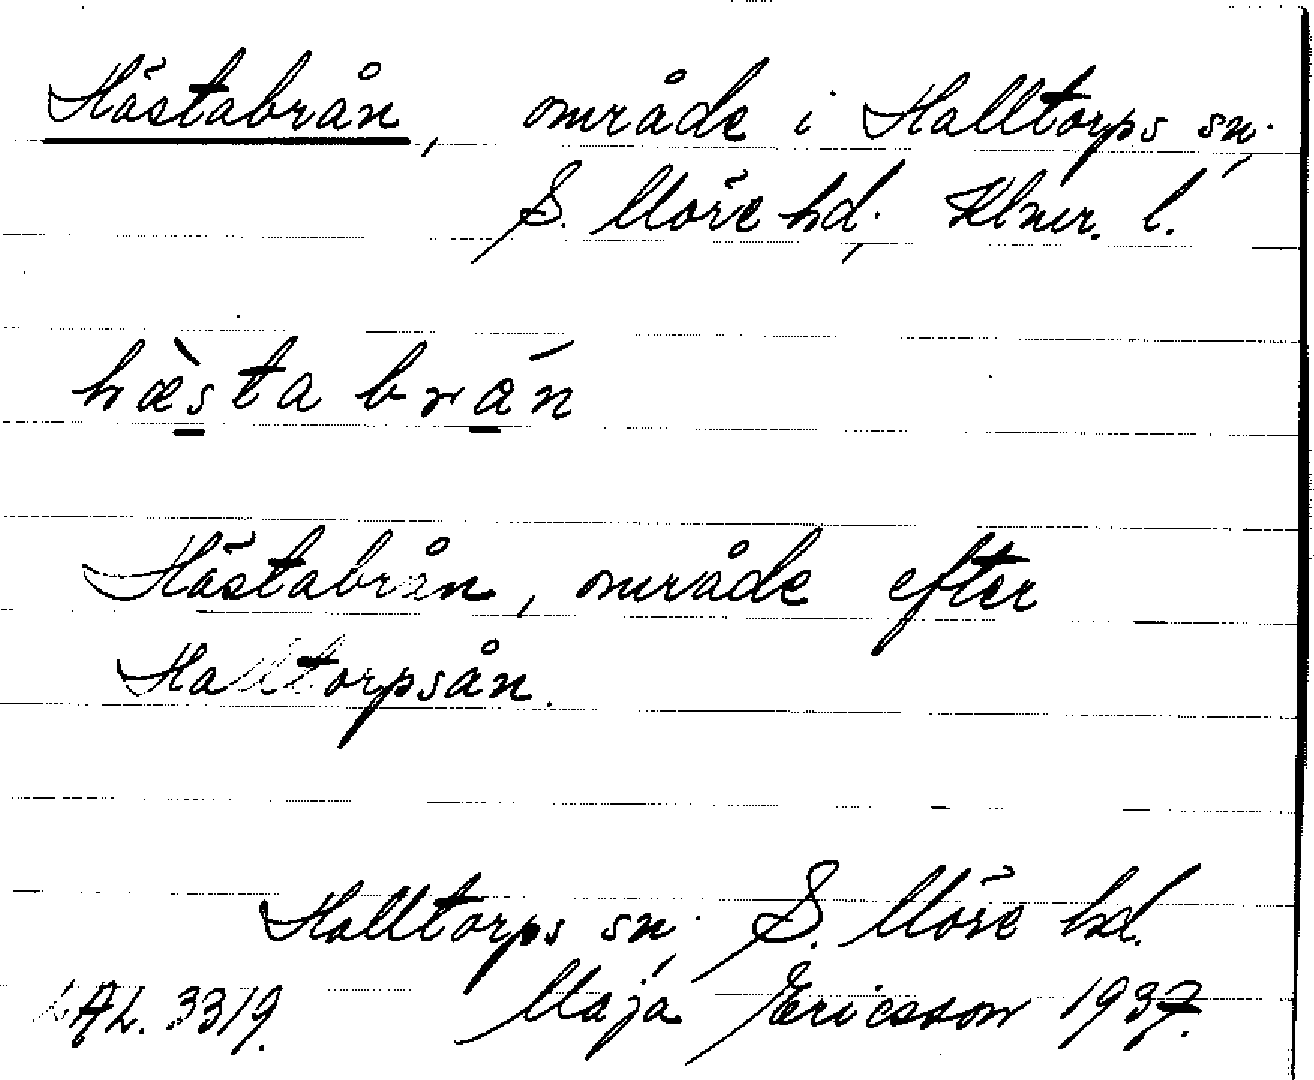 Hästabrån, område i Halltorps sn.,
S. Möre hd., Klmr. l.
hæ̀sta brån
Hästabrån, område efter
Halltorpsån.
Halltorps sn., S. Möre hd.
LAL. 3319. Maja Ericsson 1937.